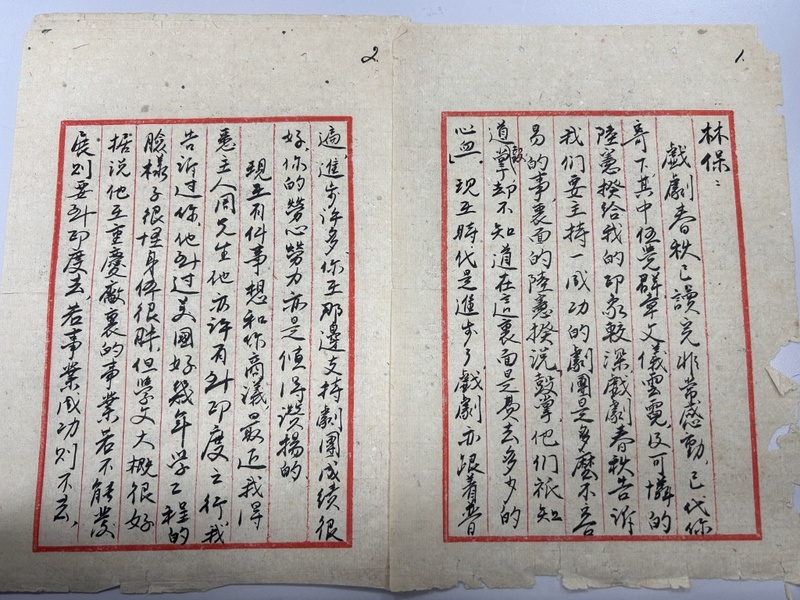 1.
林保:
戲劇春秋已讀完非常感動,已代你
寄下其中伍覺群、辛文儀、雲霓及可憐的
陸憲揆給我的印象較深戲劇春秋告訴
我们要主持一成功的劇團是多麼不容
易的事,裏面的陸憲揆說「鼓掌,他们祇知
道鼓掌却不知道在這裏面是費去多少的
心血」現在時代是進步了戲劇亦跟着普
2.
遍,進步许多你在那邊支持劇團成績很
好,你的勞心勞力亦是值得讚揚的
現在有件事想和你商議,最近我得
悉主人周先生他亦许有到印度之行我
告訴过你,他到过美國好幾年学工程的
臉樣子很怪身体很胖但学文大概很好
据说他在重慶敵裏的事業若不能發
展则要到印度去,若事業成功则不去,